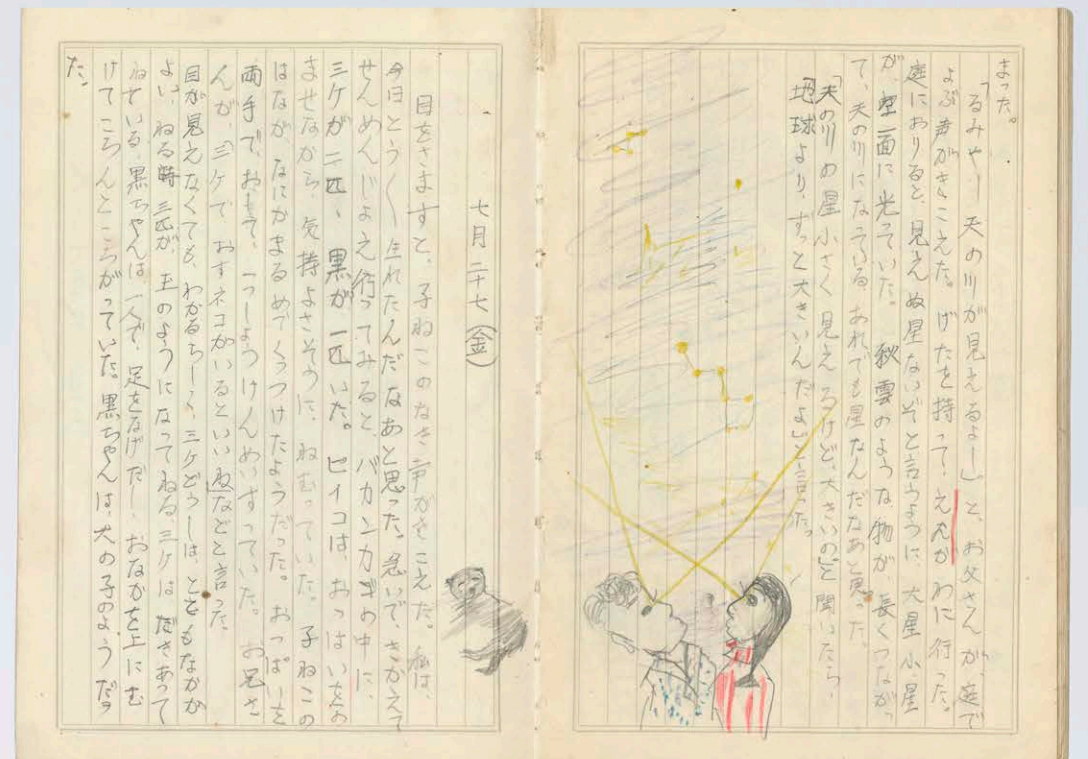 まった。
「るみやー天の川が見えるよー」と、お父さんが、庭で
よぶ声がきこえた。げたを持って、えんがわに行った。
庭におりると、見えぬ星ないぞと言うように、大星小星
が、空一面に光っていた。秋雲のような、物が、長くつながっ
て、天の川になっている。あれでも星なんだなあと思った。
「天の川の星小さく見えるけど、大きいの」と聞いたら、
「地球より、ずっと大きいんだよ」と言った。
七月二十七(金)
目をさますと、子ねこのなき声がきこえた。私は、
今日とう〱生れたんだなあと思った。急いで、きがえて
せんめんじょえ行ってみると、バカンカゴの中に、
三ケが二匹、黒が一匹いた。ピイコは、おっぱいをの
ませながら、気持よさそうに、ねむっていた。子ねこの
はなが、なにかまるめてくっつけたようだった。おっぱいを
両手で、おして、いっしょうけんめいすっていた。お兄さ
んが、「三ケで、おすネコがいるといいね」などと言った。
目が見えなくても、わかるらしく、三ケどうしは、とてもなかが
よい。ねる時三匹が、玉のようになってねる。三ケはだきあって
ねている。黒ちゃんは一人で、足をなげだし、おなかを上にむ
けてころんところがっていた。黒ちゃんは、犬の子のようだっ
た。